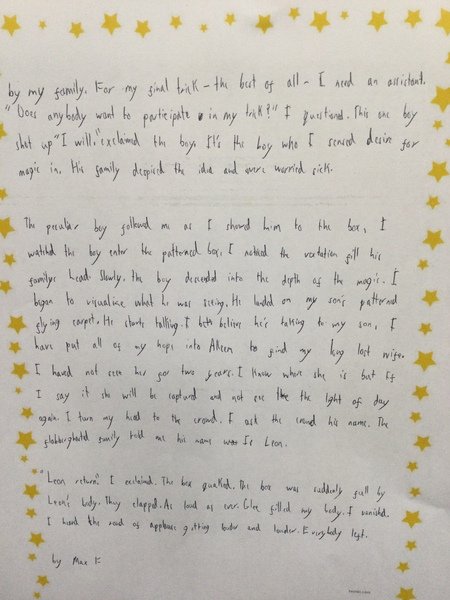 by my family. For my final trick - the best of all - I need an assistant.
"Does anybody want to participate in my trick?" I questioned. This one boy
shot up "I will," exclaimed the boy. It's the boy who I sensed desire for
magic in. His family despised the idea and were worried sick.
The peculiar boy followed me as I showed him to the box, I
watched the boy enter the patterned box, I noticed the vextation fill his
familys head. Slowly, the boy descended into the depth of the magic. I
began to visualise what he was seeing. He landed on my son's patterned
flying carpet. He starts talking. I believe he's talking to my son, I
have put all of my hope into Akeem to find my long lost wife.
I haved not seen her for two years. I know where she is but if
I say it she will be captured and not see the the light of day
again. I turn my head to the crowd. I ask the crowd his name. The
family told me his name is Leon.
"Leon return" I exclaimed. The box quaked. The box was suddenly full by
Leon's body. They clapped. As loud as ever. Glee filled my body. I vanished.
I heard the sound of applause getting louder and louder. Everybody left.
by Max F